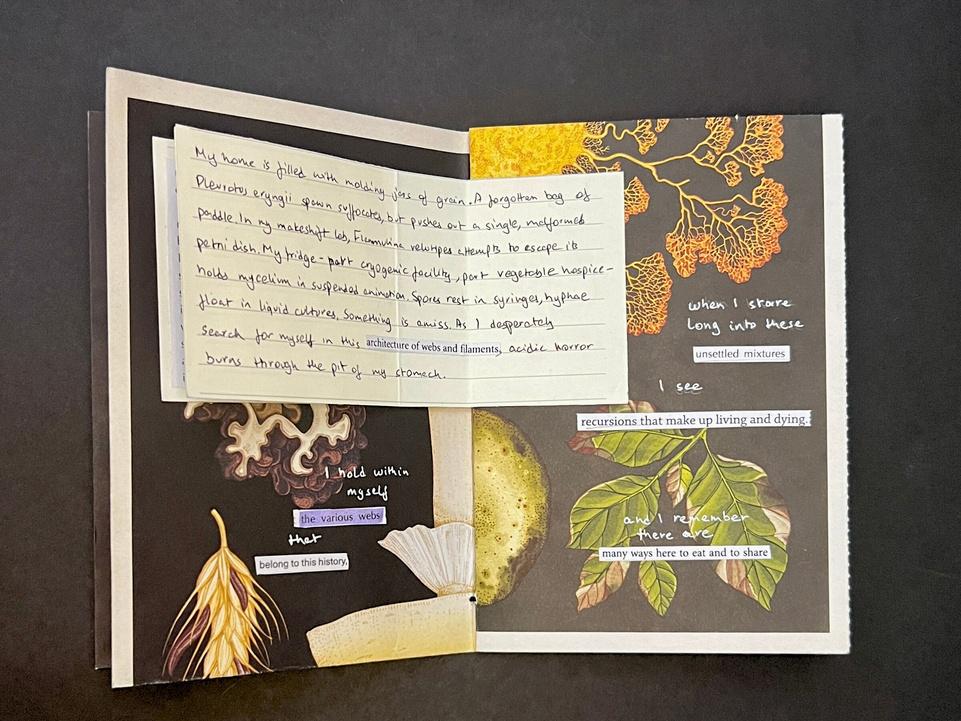 My home is filled with molding jars of grain. A forgotten bag of
Pleurotus eryngii spawn suffocates, but pushes out a single, malformed
paddle. In my makeshift lab, Flammulina velutipes attempts to escape its
petri dish. My fridge - part cryogenic facility, part vegetable hospice -
holds mycelium in suspended animation. Spores rest in syringes, hyphae
float in liquid cultures. Something is amiss. As I desperately
search for myself in this architecture of webs and filaments, acidic horror
burns through the pit of my stomach.
I hold within
myself
the various webs
that
belong to this history,
when I stare
long into these
unsettled mixtures
I see
recursions that make up living and dying.
and I remember
there are
many ways here to eat and to share